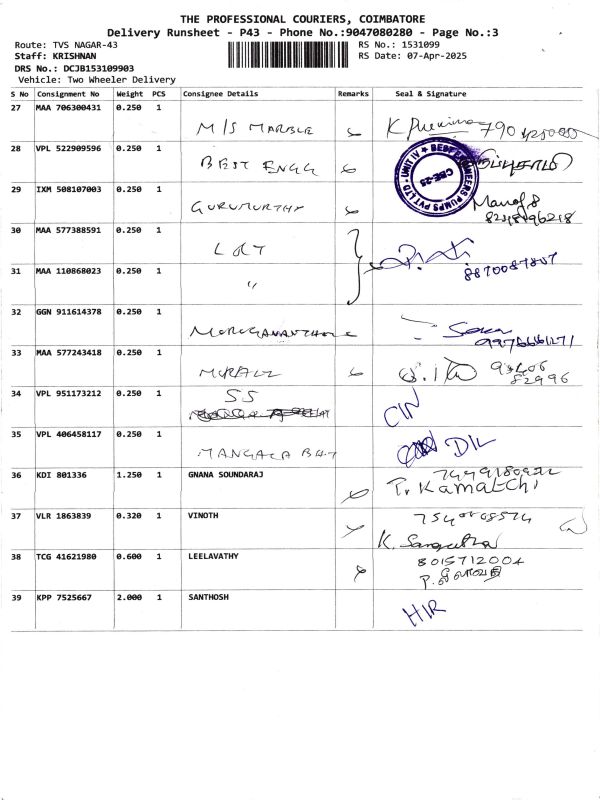 THE PROFESSIONAL COURIERS, COIMBATORE
Delivery Runsheet - P43 - Phone No.:9047080280 - Page No.:3
Route: TVS NAGAR-43 RS No.: 1531099
Staff: KRISHNAN RS Date: 07-Apr-2025
DRS No.: DCJB153109903
Vehicle: Two Wheeler Delivery
S No Consignment No Weight PCS Consignee Details Remarks Seal & Signature
27 MAA 706300431 0.250 1 M/S MARBLE
28 VPL 522909596 0.250 1 BEST ENGG
29 IXM 508107003 0.250 1 GURUMURTHY
30 MAA 577388591 0.250 1 L&T
8870087807
31 MAA 110868023 0.250 1 "
32 GGN 911614378 0.250 1
33 MAA 577243418 0.250 1
82996
34 VPL 951173212 0.250 1 SS
CIN
35 VPL 406458117 0.250 1 DIL
36 KDI 801336 1.250 1 GNANA SOUNDARAJ
T. Kamatchi
37 VLR 1863839 0.320 1 VINOTH
38 TCG 41621980 0.600 1 LEELAVATHY
8015712004
39 KPP 7525667 2.000 1 SANTHOSH
HIR